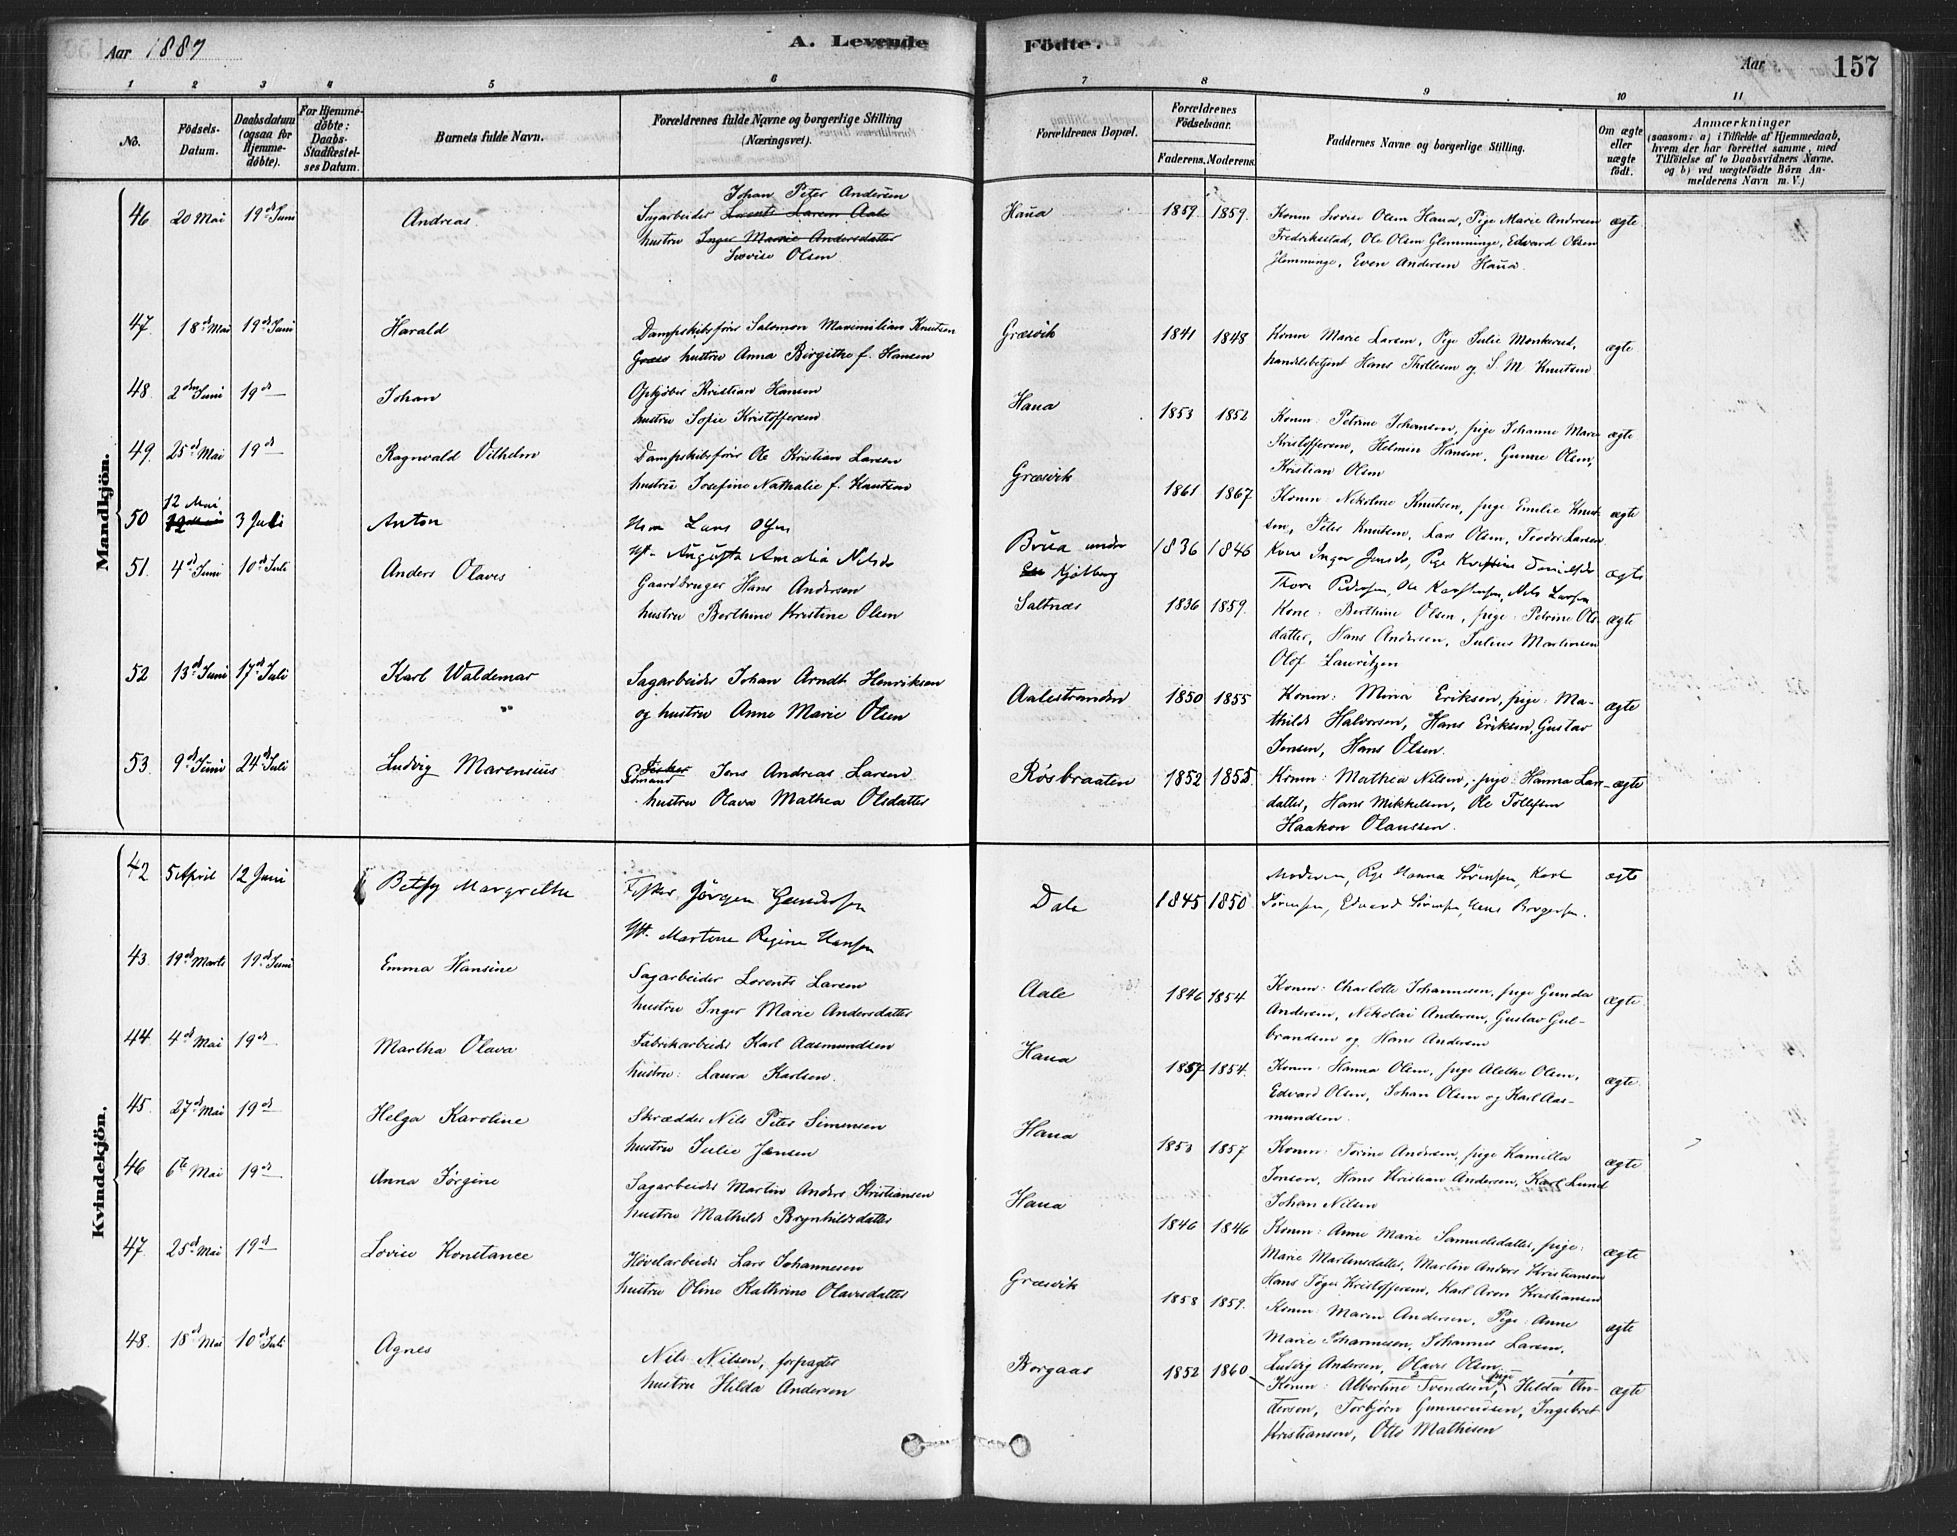 Aar 1887
A. Levende
Födte.
Aar
157
1 2 3 4 5 6 7 8 9 10 11
No.
Födsels-Datum.
Daabsdatum (ogsaa for Hjemme-döbte).
For Hjemme-döbte: Daabs-Stadfæstel-ses Datum.
Barnets fulde Navn.
Forældrenes fulde Navne og borgerlige Stilling (Næringsvei).
Forældrenes Bopæl.
Forældrenes Födselsaar.
Faderens. Moderens.
Faddernes Navne og borgerlige Stilling.
Om ægte eller uægte födt.
Anmærkninger
(saasom: a) i Tilfælde af Hjemmedaab, hvem der har forrettet samme, med Tilföielse af to Daabsvidners Navne. og b) ved uægtefödte Börn Anmelderens Navn m. V.)
Mandkjön.
46 20 Mai 19de Juni Andreas
Johan Peter Andersen
Sagarbeider Lorents Larsen Aale
hustru Inger Marie Andersdatter
Lovise Olsen
Haua 1859 1859
Konen Lovise Olsen Haua, Pige Marie Andersen
Fredriksstad, Ole Olsen Glemminge, Edvard Olsen
Glemminge, Even Andersen Haua.
ægte
47. 18de Mai 19de Juni Harald
Dampskibsfører Salomon Maximilian Knutsen
hustru Anna Birgithe f. Hansen
Græsvik 1841 1848
Konen Marie Larsen, Pige Julie Monkerud,
handelsbetjent Hans Thollesen og S. M. Knutsen
ægte
48. 2den Juni 19de Johan
Opkjøber Kristian Hansen
hustru Sofie Kristoffersen
Haua 1853 1852
Konen: Petrine Johansen, pige Johanne Marie
Kristoffersen, Helmin Hansen, Gunne Olsen,
Kristian Olsen
ægte
49. 25de Mai 19de Ragnvald Vilhelm
Dampskibsfører Ole Kristian Larsen
hustru Josefine Nathalie f. Knutsen
Græsvik 1861 1867
Konen: Nikoline Knutsen, pige Emilie Knut-
sen, Peter Knutsen, Lars Olsen, Teodor Larsen.
ægte
50 12 Mai 3 Juli Anton
Lars Olsen
Augusta Amalia Nilsd.
Brua under
Kjølberg 1836 1846
Kone Inger Jensd., Pige Kristine Danielsd.
Thore Pedersen, Ole Karstensen, Nils Larsen
ægte
51. 4de Juni 10de Juli Anders Olaves
Gaardbruger Hans Andersen
hustru Berthine Kristine Olsen
Saltnæs 1836 1859.
Kone: Berthine Olsen, pige: Petrine Ols-
datter, Hans Andersen, Julius Martinsen
Olof Lauritzen
ægte
52 13de Juni 17de Juli Karl Waldemar
Sagarbeider Johan Arndt Henriksen
og hustru Anne Marie Olsen
Aalestranden 1850 1855
Konen: Mina Eriksen, pige: Ma-
thilde Halvorsen, Hans Eriksen, Gustav
Jensen, Hans Olsen.
ægte
53. 9de Juni 24de Juli Ludvig Marensius
Fisker Jens Andreas Larsen
hustru Olava Mathea Olsdatter
Røsbraaten 1852 1855
Konen: Mathea Nilsen, pige: Hanna Lars-
datter, Hans Mikkelsen, Ole Tollefsen
Haakon Olaussen.
ægte
Kvindekjön.
42 5 April 12 Juni Betsy Margrethe
Fisker Jørgen Gundersen
Martine Regine Hansen
Dale 1845 1850
Moderen, Pige Hanna Sørensen, Karl
Sørensen, Edvard Sørensen, Hans Borgersen.
ægte
43. 19de Marts 19de Juni Emma Hansine
Sagarbeider Lorents Larsen
hustru Inger Marie Andersdatter
Aale 1846 1854
Konen: Charlotte Johannesen, pige Gunda
Andersen, Nikolai Andersen, Gustav Gul-
brandsen og Hans Andersen
ægte
44. 4de Mai 19de Martha Olava
Fabrikarbeider Karl Aasmundsen
hustru: Laura Karlsen.
Haua 1857 1854.
Konen: Hanna Olsen, pige Alethe Olsen,
Edvard Olsen, Johan Olsen og Karl Aas-
mundsen.
ægte
45. 27de Mai 19de Helga Karoline
Skrædder Nils Peter Simensen
hustru Julie Jensen
Haua 1853 1857
Konen: Torine Andersen, pige Kamilla
Jonson, Hans Kristian Andersen, Karl Lund
Johan Nilsen
ægte
46 6te Mai 19de Anna Jørgine
Sagarbeider Martin Anders Kristiansen
hustru Mathilde Brynhildsdatter
Haua 1846 1846
Konen: Anne Marie Samuelsdatter, pige:
Marie Martinsdatter, Martin Anders Kristiansen
Hans Jøger Kristoffersen, Karl Aron Kristiansen
ægte
47. 25de Mai 19de Lovise Konstance
Høvelarbeider Lars Johannesen
hustru Oline Kathrine Olavesdatter
Græsvik 1858 1859.
Konen: Maren Andersen, Pige: Anne
Marie Johannesen, Johannes Larsen,
Ludvig Andersen, Olaves Olsen
ægte
48. 18de Mai 10de Juli Agnes
Nils Nilsen, forpagter
hustru Hilda Andersen
Borgaas 1852 1860
Konen: Albertine Svendsen, pige Hilda An-
dersen, Torbjørn Gunnerudsen, Ingebret
Kristiansen, Otto Mathisen
ægte